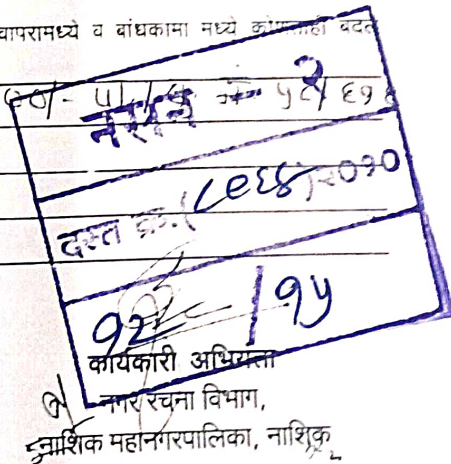 वापरामध्ये व बांधकामा मध्ये कोणताही बदल
नसन
दस्त क्र. (८९६४) २०१०
१२ / १५
कार्यकारी अभियंता
नगर रचना विभाग,
नाशिक महानगरपालिका, नाशिक